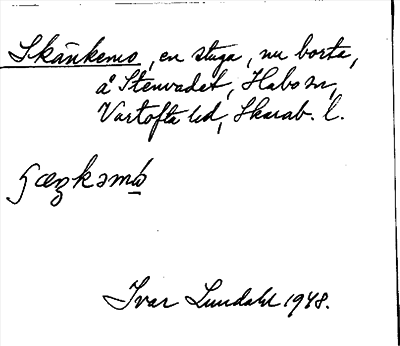 Skänkemo, en stuga, nu borta,
å Stenvadet, Habo sn,
Vartofta hd, Skarab. l.
Ivar Lundahl 1948.